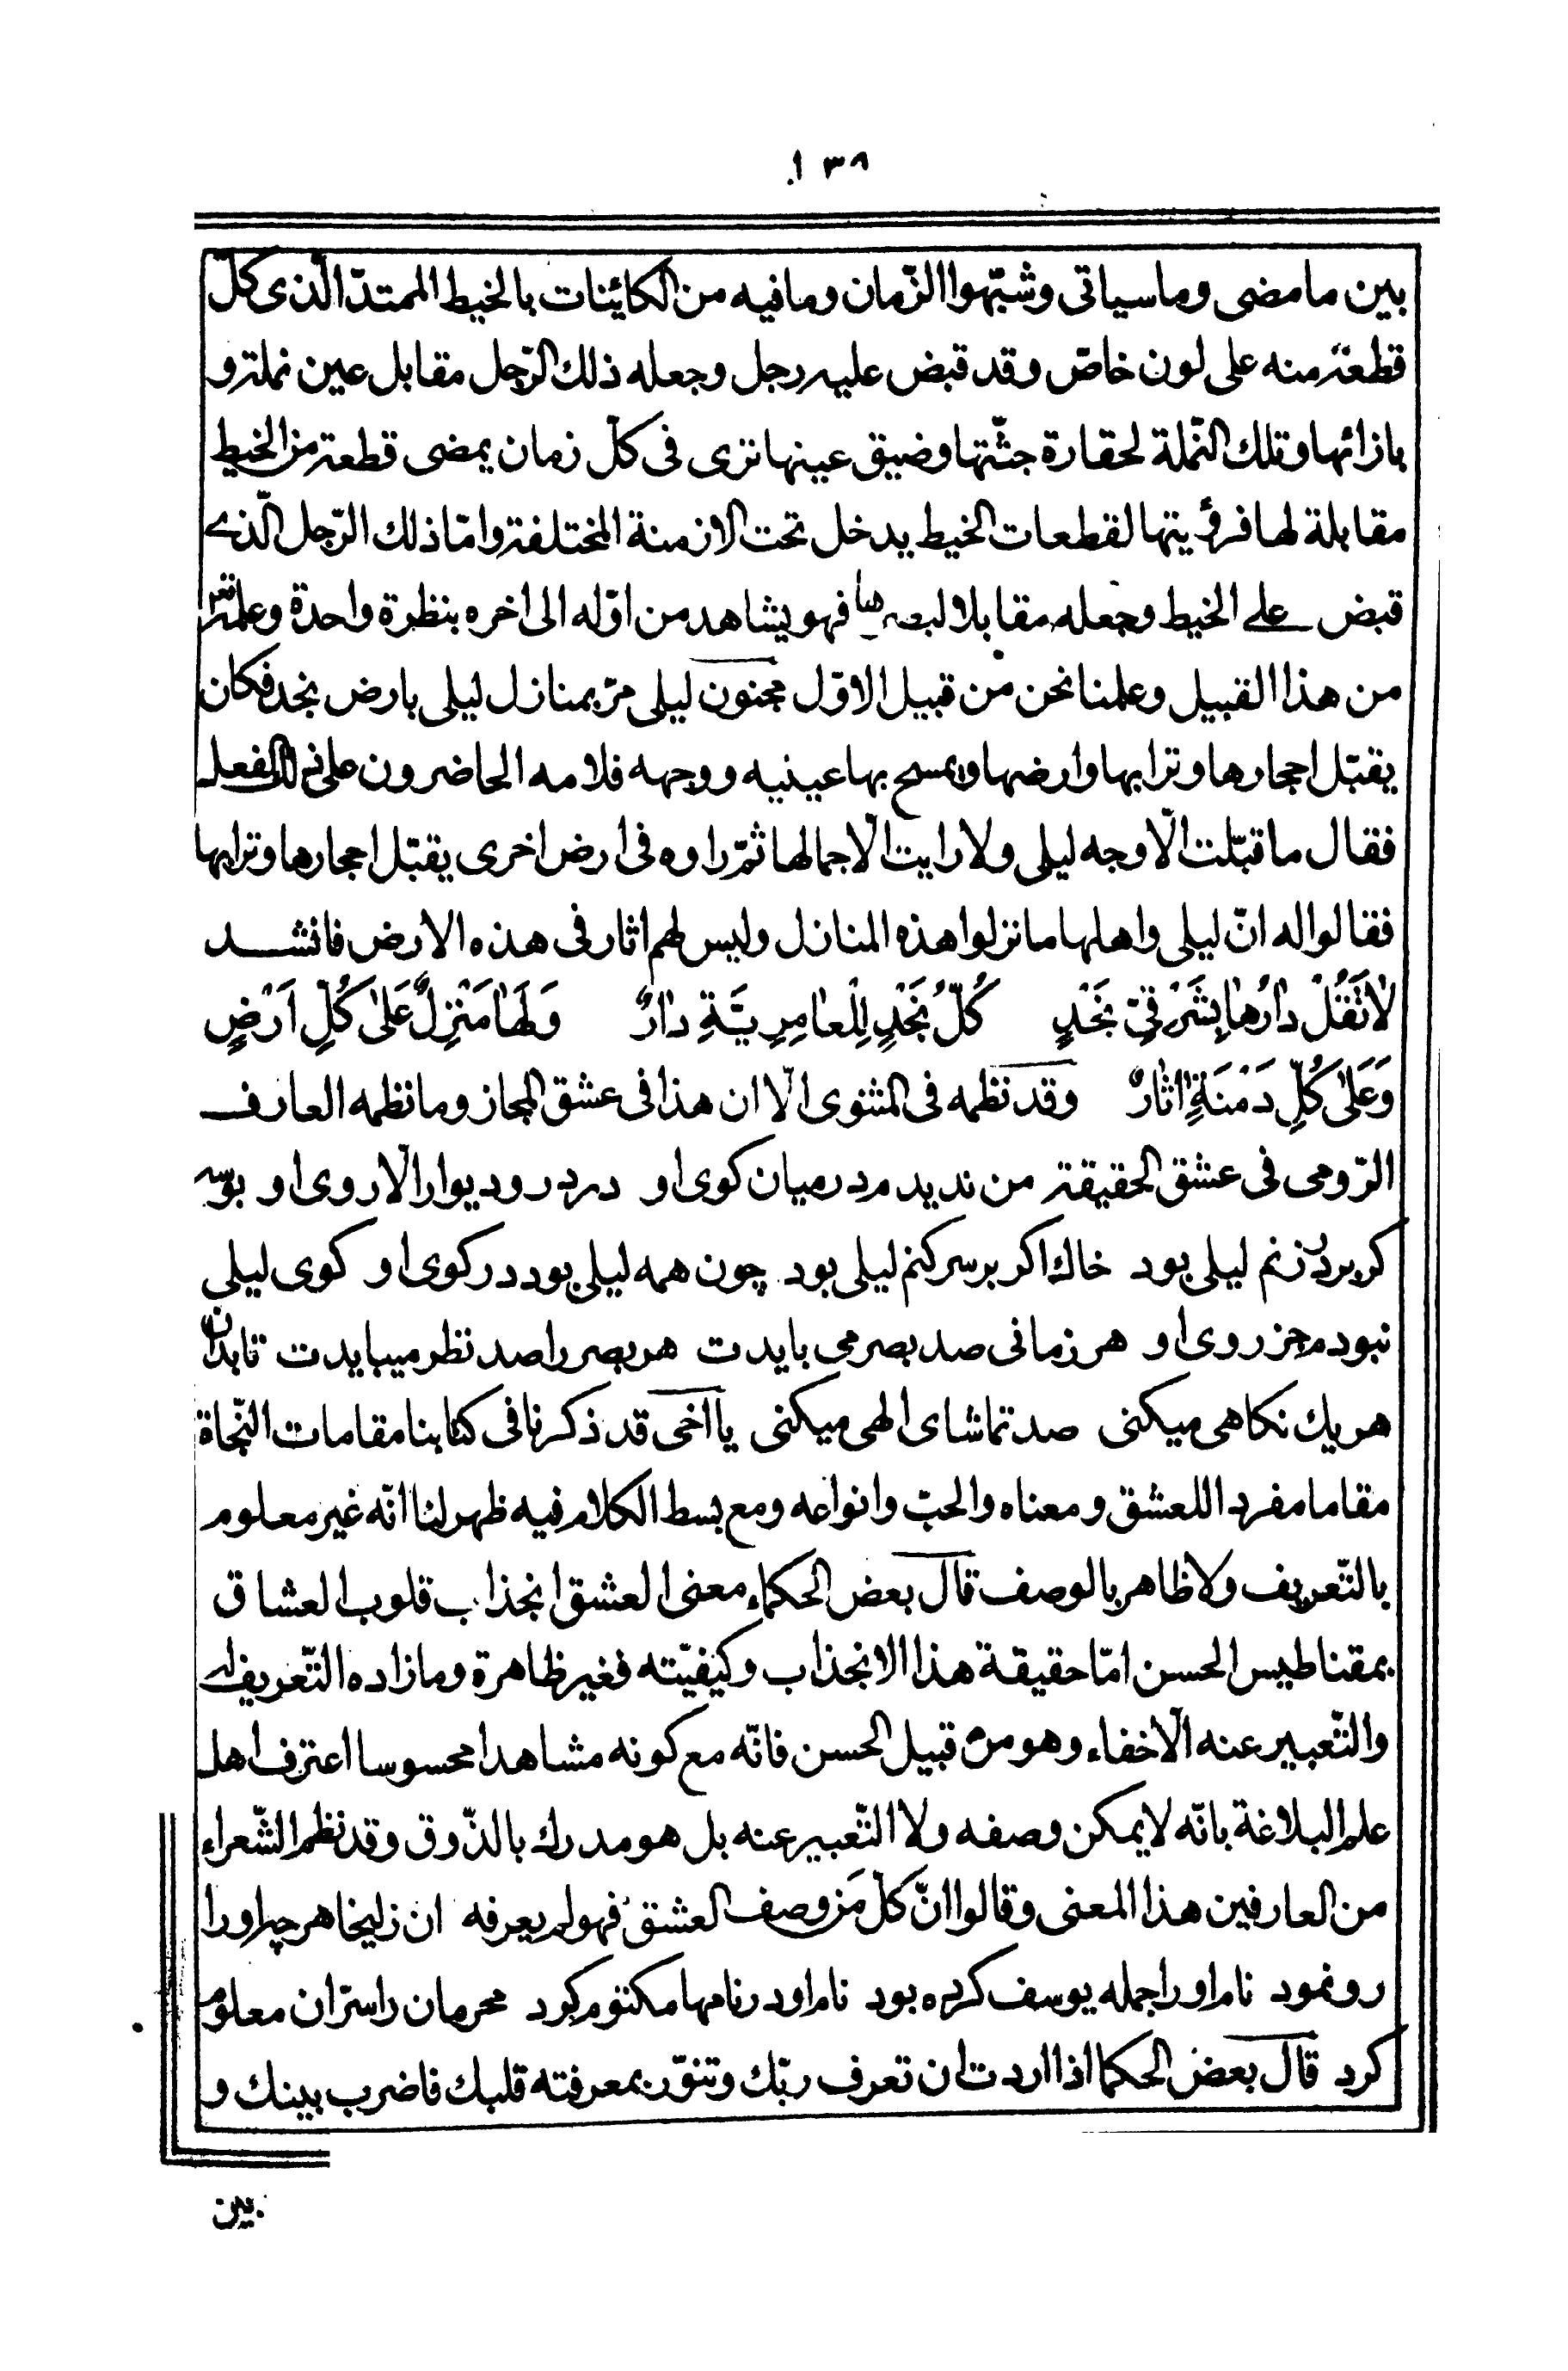 ١٣٨
بين ما مضى وما سياتى وشبّهوا الزّمان وما فيه من الكائنات بالخيط الممتدّ الّذى كلّ
قطعة منه على لون خاصّ وقد قبض عليه رجل وجعله ذلك الرّجل مقابل عين نملة و
بازائها وتلك النّملة لحقارة جثّتها وضيق عينها ترى فى كلّ زمان يمضى قطعة من الخيط
مقابلة لها فرؤيتها لقطعات الخيط يدخل تحت الازمنة المختلفة وامّا ذلك الرّجل الّذى
قبض على الخيط وجعله مقابلا لبصرها فهو يشاهد من اوّله الى اخره بنظرة واحدة وعلمه تعالى
من هذا القبيل وعلمنا نحن من قبيل الاوّل مجنون ليلى مرّ بمنازل ليلى بارض نجد فكان
يقبّل احجارها وترابها وارضها ويمسح بها عينيه ووجهه فلامه الحاضرون على ذلك الفعل
فقال ما قبّلت الّا وجه ليلى ولا رايت الّا جمالها ثمّ راوه فى ارض اخرى يقبّل احجارها وترابها
فقالوا له انّ ليلى واهلها ما نزلوا هذه المنازل وليس لهم اثار فى هذه الارض فانشد
لٰا تَقُلْ دٰارُهٰا بِشَرْقِىّ نَجْدٍ كُلّ نَجْدٍ لِلْعٰامِرِيَّةِ دٰارٌ وَلَهٰا مَنْزِلٌ عَلىٰ كُلِّ اَرْضٍ
وَعَلىٰ كُلِّ دَمْنَةٍ اٰثٰارٌ وقد نظمه فى المثنوى الّا ان هذا فى عشق المجاز وما نظمه العارف
الرّومى فى عشق الحقيقة من نديدم در ميان كوى او در در و ديوار الّا روى او بوسه
كر بر در زنم ليلى بود خاك اكر بر سر كنم ليلى بود چون همه ليلى بود در كوى او كوى ليلى
نبود مجز روى او هر زمانى صد بصر مى بايدت هر بصر را صد نظر ميبايدت تا بدان
هر يك نكاهى ميكنى صد تماشاى الهى ميكنى يا اخى قد ذكرنا فى كتابنا مقامات النّجاة
مقاما مفردا للعشق ومعناه والحبّ وانواعه ومع بسط الكلام فيه ظهر لنا انّه غير معلوم
بالتّعريف ولا ظاهر بالوصف قال بعض الحكماء معنى العشق انجذاب قلوب العشاق
بمقناطيس الحسن امّا حقيقة هذا الانجذاب وكيفيّته فغير ظاهرة وما زاده التّعريف له
والتّعبير عنه الّا خفاء وهو من قبيل الحسن فانّه مع كونه مشاهدا محسوسا اعترف اهل
علم البلاغة بانّه لا يمكن وصفه ولا التّعبير عنه بل هو مدرك بالذّوق وقد نظم الشّعراء
من العارفين هذا المعنى وقالوا انّ كلّ مَن وصف العشق فهو لم يعرفه ان زليخا هر چه او را
رو نمود نام او را جمله يوسف كرده بود نام او در نامها مكتوم كرد محرمان را سرّ ان معلوم
كرد قال بعض الحكما اذا اردت ان تعرف ربّك وتنوّر بمعرفته قلبك فاضرب بينك و
بين